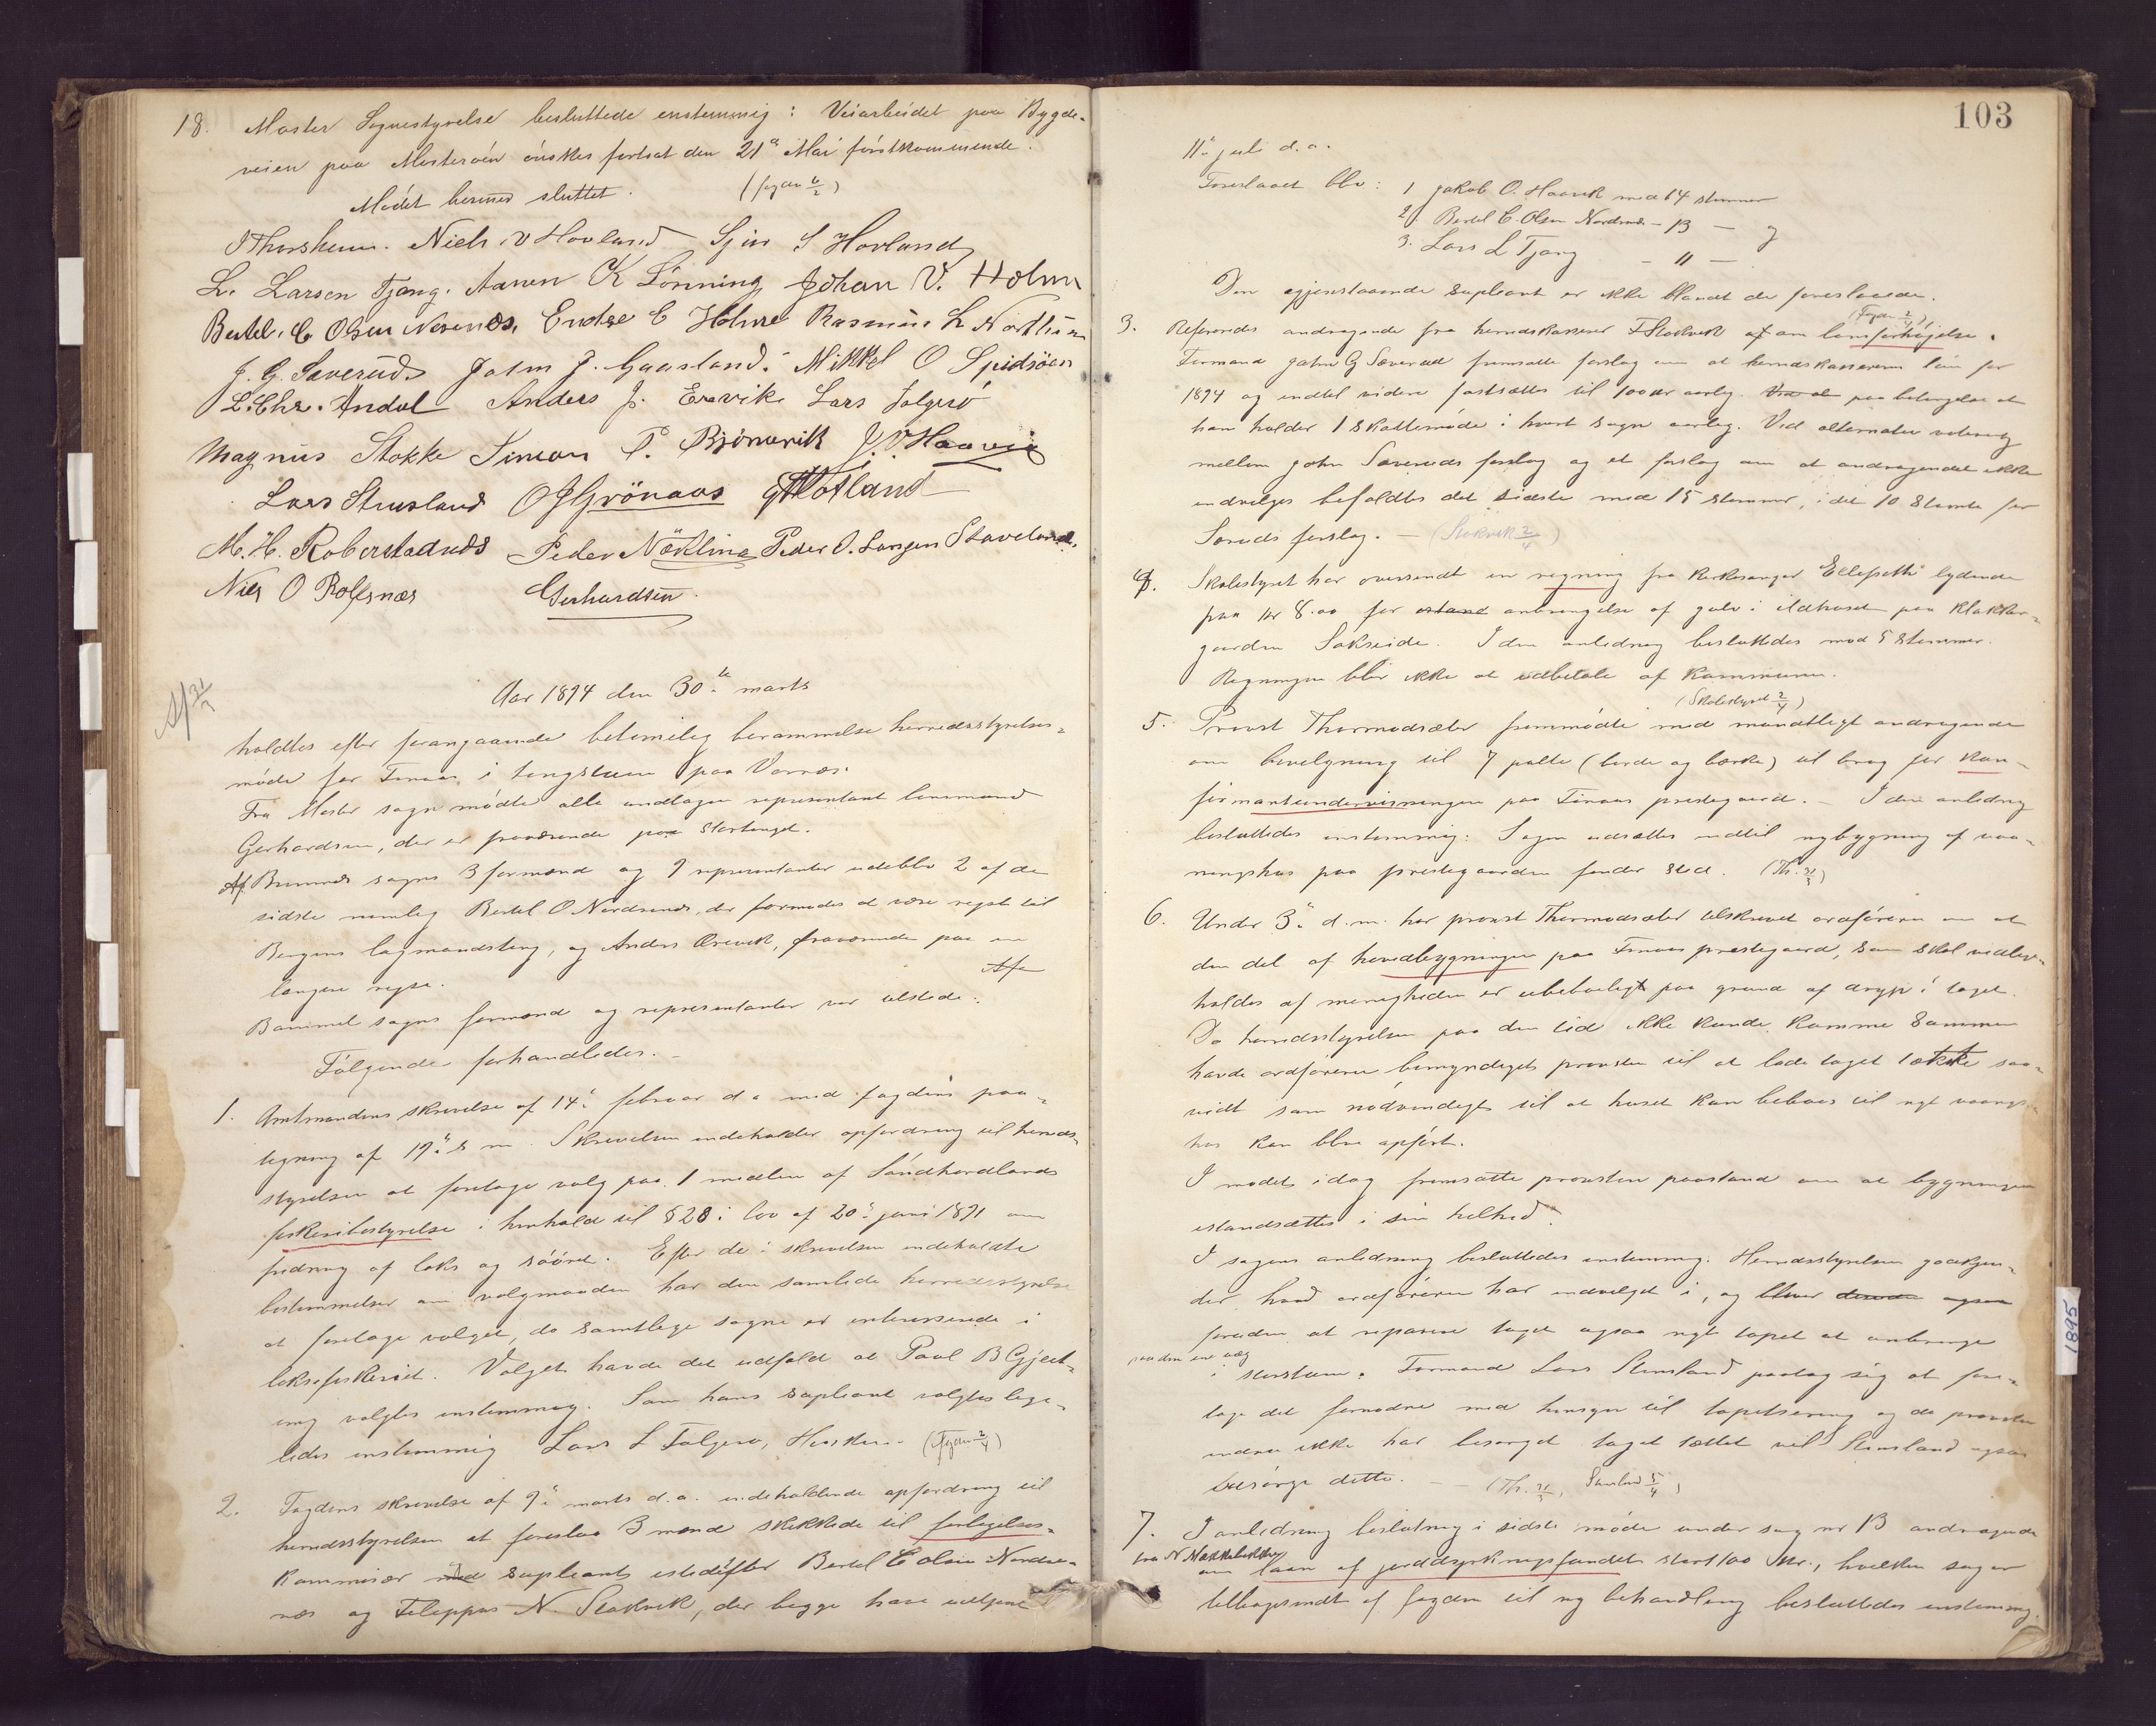 18. Moster Sognestyrelse besluttede enstemmig: Veiarbeidet paa Bygde-
veien paa Mosterøen ønskes fortsat den 21de Mai førstkommende.
Mødet hermed sluttet. (fogden 6/2)
Thorsheim. Niels N Hovland Sjur S Hovland
L. Larsen Tjong. Aamen K Lønning Johan V. Holm
Bertel. C Olsen Nesenes, Endre E Holme Rasmus L Nortun
J. G. Saverud John J. Gaasland. Mikkel O Spidsöen
L. Chr. Andal Anders J. Erevik Lars Folgerö
Magnus Stokke Simon P. Bjönevik J. O Haavig
Lars Stensland O J Grönaas Hotland
M. H. Roberstadnes Peder Nökling Peder O. Langen Staveland.
Nils O Rolfsnæs Gerhardsen
Af 31/7
Aar 1894 den 30te marts
holdtes efter forangaaende betimelig berammelse herredsstyrelses-
møde for Finaas i tingstuen paa Vornæs.
Fra Moster sogn mødte alle undtagen repræsentant lensmand
Gerhardsen, der er fraværende paa Stortinget.
Af Bremnes sogns 3 formænd og 9 representanter udeblev 2 af de
sidste nemlig Bertel O Nordnes, der formodes at være rejst til
Bergens lagmandsting, og Anders Erevik, fraværende paa en
længere rejse.
Bømmel sogns formænd og representanter var tilstede.
Følgende forhandledes. –
1. Amtmandens skrivelse af 14de februar d. a. med fogdens paa-
tegning af 19de s. m. Skrivelsen indeholder opfordring til herreds-
styrelsen at foretage valg paa 1 medlem af Søndhordlands
fiskeribestyrelse i henhold til § 28 i lov af 20de juni 1891 om
fredning af laks og søørret. Efter de i skrivelsen indeholdte
bestemmelser om valgmaaden har den samlede herredsstyrelse
at foretage valget, da samtlige sogne er interesserede i
laksefiskeriet. Valget havde det udfald at Paul B Gjert-
ing valgtes enstemmig. Som hans supleant valgtes lige-
ledes enstemmig Lars L Folgerø, (Fogden 2/4)
2. Fogdens skrivelse af 9de marts d. a. indeholdende opfordring til
herredsstyrelsen at foreslaa 3 mænd skikkede til forligelses-
kommisær med supleants istedefter Bertel C Olsen Nordse-
næs og Filippus N. Stokvik, der begge have udtjent
103
11te juli d. a.
Foreslaaet blev: 1 Jakob O. Haavik med 14 stemmer
2. Bertel C. Olsen Nordnes – 13 – og
3. Lars L Tjong – 11 –
Den gjenstaaende supleant er ikke blandt de foreslaaede.
(Fogden 2/4)
3. Referedes andragende fra herredskasserer F Stokvik om lønforhøjelse.
Formand John G Saverud fremsatte forslag om at herredskassererens løn for
1894 og indtil videre fastsættes til 100 kr aarlig. paa betingelse at
han holder 1 skattemøde i hvert sogn aarlig. Ved alternativ votering
mellem John Saveruds forslag og et forslag om at andragendet ikke
indvilges befaldtes det sidste med 15 stemmer, idet 10 stemte for
Saveruds forslag. – (Stokvik 2/4)
4. Skolestyret har oversendt en regning fra kirkesanger Ellefsetti lydende
paa kr 8.00 for anbringelse af gulv i ildhuset paa klokker-
gaarden Sakseide. I den anledning besluttedes mod 5 stemmer.
Regningen blir ikke at udbetale af kommunen.
(Skolestyret 2/4)
5. Provst Thormodsæter fremmødte med mundtligt andragende
om bevilgning til 7 pulte (borde og bænke) til brug for kon-
firmantundervisningen paa Finaas prestegaard. – I den anledning
besluttedes enstemmig: Sagen udsættes indtil nybygning af vaa-
ningshus paa prestegaarden finder sted. (Th. 31/3)
6. Under 3de d. m. har provst Thormodsæter tilskrevet ordføreren om at
den del af hovedbygningen paa Finaas prestegaard, som skal vedlige-
holdes af menigheden er ubeboeligt paa grund af dryp i taget.
Da herredsstyrelsen paa den tid ikke kunde komme sammen
havde ordføreren bemyndiget provsten til at lade taget tække saa-
vidt som nødvendigt til at huset kan beboes til nyt vaanings-
hus kan blive opført.
I mødet idag fremsatte provsten paastand om at bygningen
istandsættes i sin helhed.
I sagens anledning besluttedes enstemmig. Herredsstyrelsen godkjen-
der, hvad ordføreren har indvilget i, og bliver desuden ogsaa
foruden at reparere taget ogsaa nyt tapet at anbringe
paa den ene væg
i storstuen. Formand Lars Stensland paatog sig at fore-
tage det fornødne med hensyn til tapetsering og da provsten
endnu ikke har besørget taget tættet vil Stensland ogsaa
besørge dette. – (Th. 31/3, Stensland 5/4)
7. I anledning beslutning i sidste møde under sag nr 13 andragende
fra N Nækkelikke
om laan af jorddyrkningsfondet stort 100 Kr., hvilken sag er
tilbagesendt af fogden til ny behandling besluttedes enstemmig.
1895